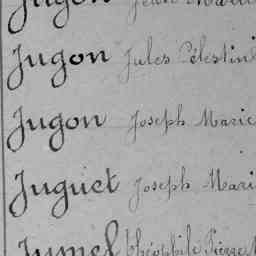 Jugon Jean Marie
Jugon Jules Célestin
Jugon Joseph Marie
Juguet Joseph Mari
Jumel Théophile Pierre